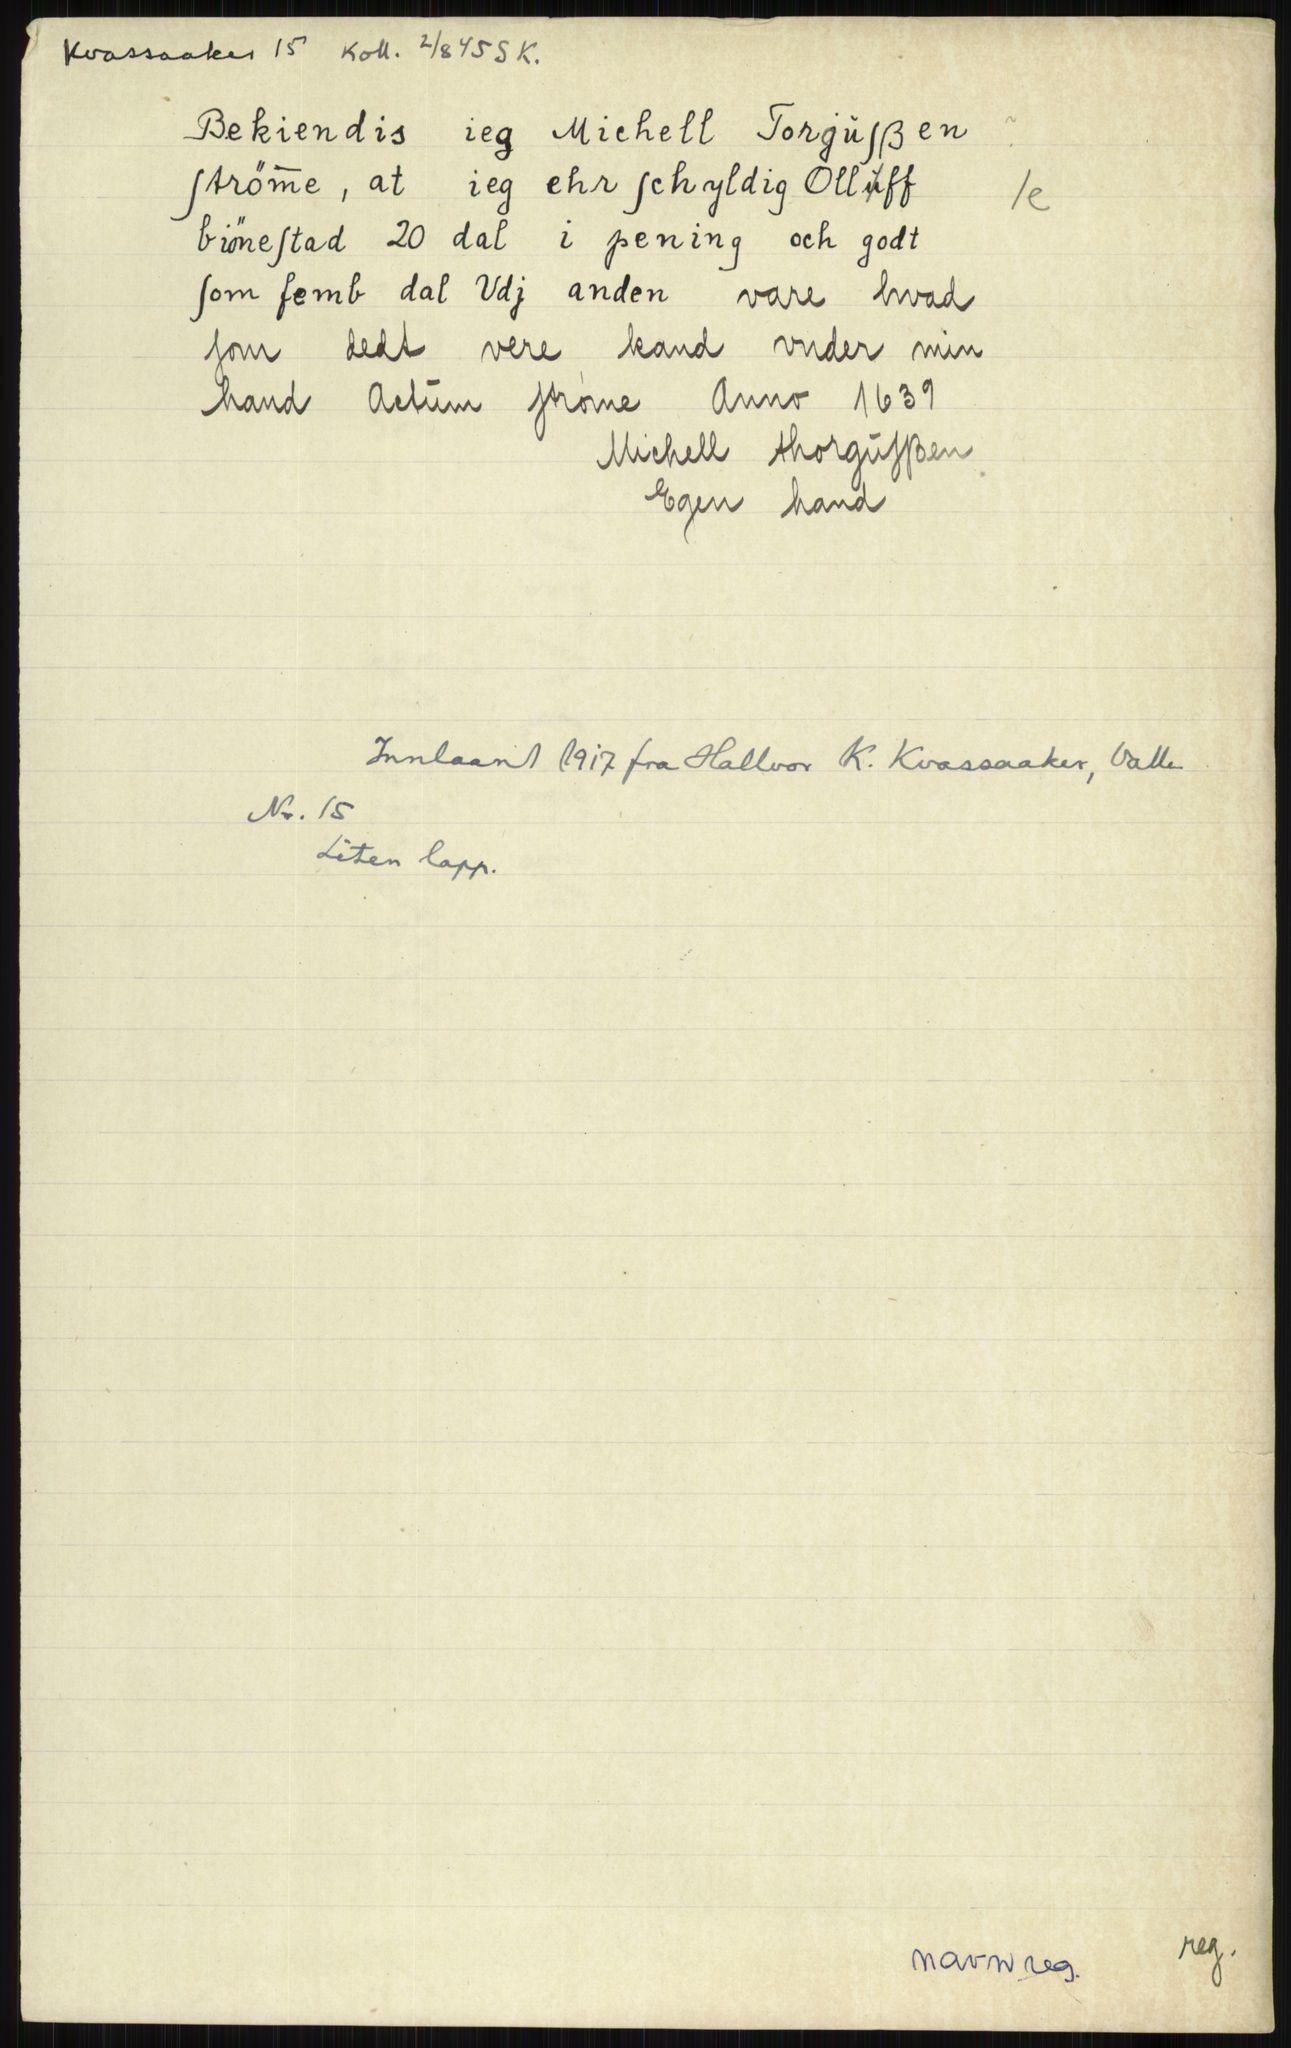 Kvassaaker 15 Koll. 2/8 45 S K.
Bekiendis ieg Michell Torgüſßen
ſtröm̄e, at ieg ehr ſchyldig Ollüff /e
biöneſtad 20 dal i pening och godt
ſom femb dal Vdj anden vare hvad
ſom dedt vere kand vnder min
hand Actūm ſtröme Anno 1639
Michell thorgūſßen
Egen hand
Innlaant 1917 fra Hallvor K. Kvassaaker, Valle
Nr. 15
Liten lapp.
navnreg.
reg.